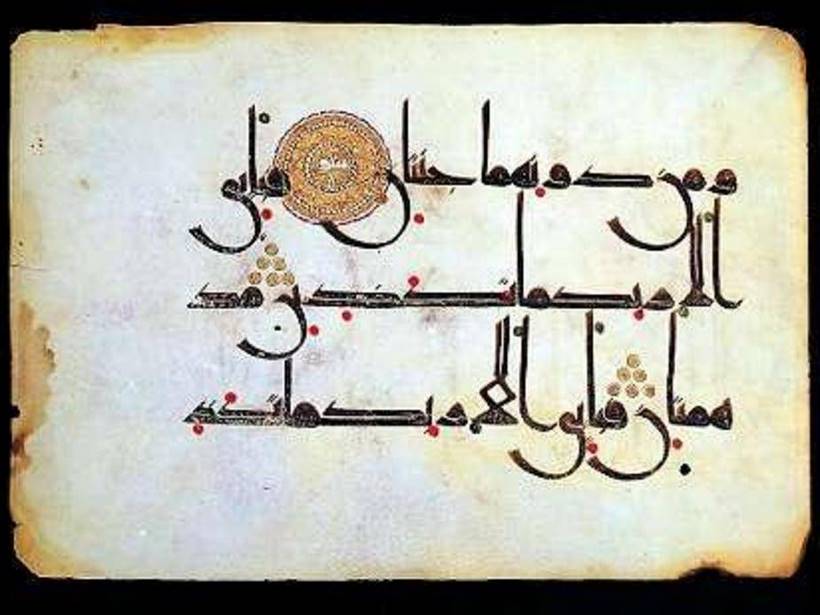 ومن دونهما جنتان فباي
الا ربكما تكذبن مد
همتان فباي الا ربكما تكذب